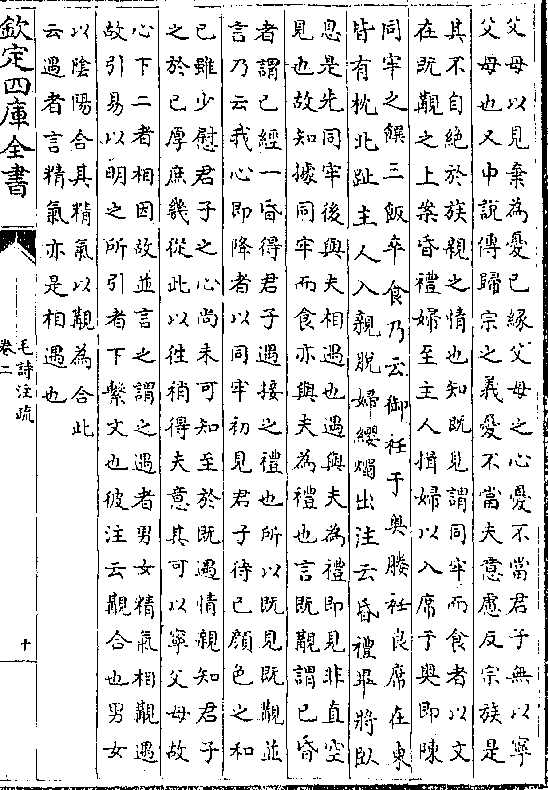 父母以見棄為憂已緣父母之心憂不當君子無以寧
父母也又中說傳歸宗之義憂不當夫意慮反宗族是
其不自絶於族親之情也知既見謂同牢而食者以文
在既覯之上案昏禮婦至主人揖婦以入席于奥即陳
同牢之饌三飯卒食乃云御衽于奥媵衽良席在東
皆有枕北趾主人入親脫婦纓燭出注云昏禮畢將臥
息是先同牢後與夫相遇也遇與夫為禮即見非直空
見也故知據同牢而食亦與夫為禮也言既覯謂已昏
者謂已經一昏得君子遇接之禮也所以既見既覯並
言乃云我心即降者以同牢初見君子待已顔色之和
已雖少慰君子之心尚未可知至於既遇情親知君子
之於已厚庶幾從此以往稍得夫意其可以寧父母故
心下二者相因故並言之謂之遇者男女精氣相覯遇
故引易以明之所引者下繫文也彼注云覯合也男女
以陰陽合其精氣以覯為合此
云遇者言精氣亦是相遇也
欽定四庫全書
毛詩注疏
卷二
十